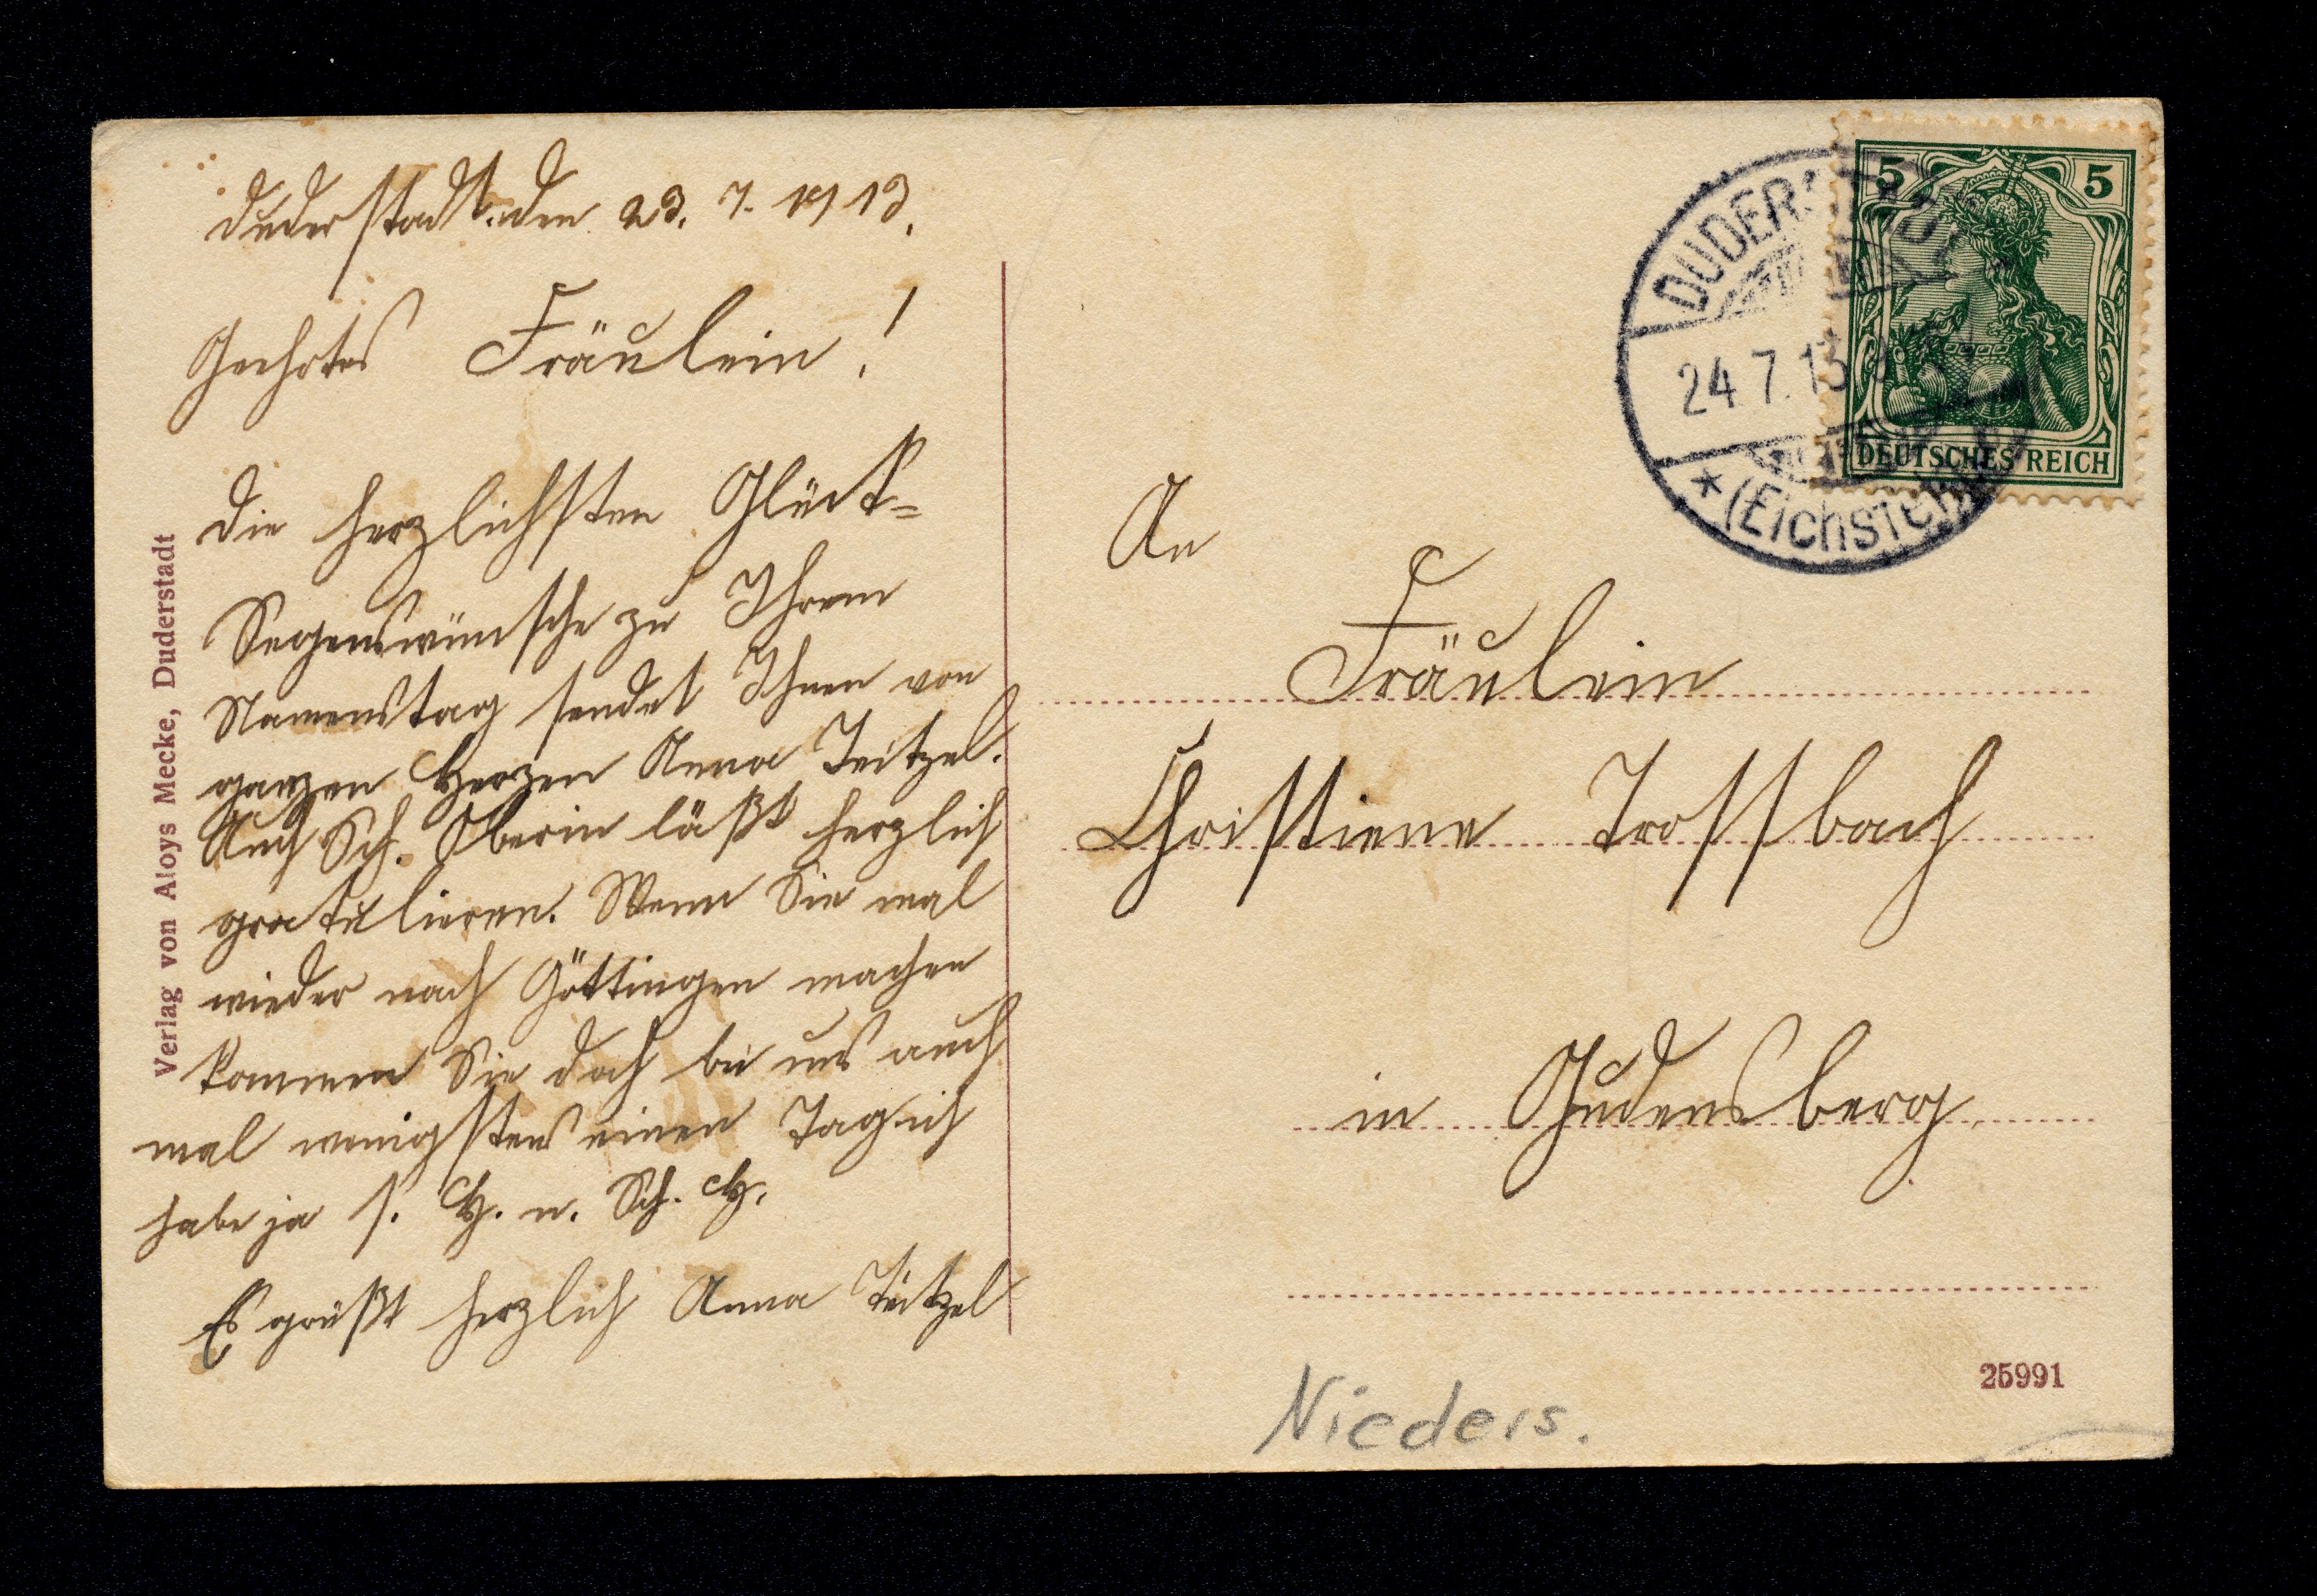 Duderstadt. den 23. 7. 1913.
Geehrtes Fräulein!
Die herzlichsten Glück=
Segenswünsche zu Ihrem
Namenstag sendet Ihnen von
ganzen Herzen Anna Teitzel.
Auch Sch. Oberin läßt herzlich
gratulieren. Wenn Sie mal
wieder nach Göttingen machen
kommen Sie doch bei uns auch
mal wenigstens einen Tag ich
habe ja f. H. u. Sch. H.
Es grüßt herzlich Anna Teitzel
Verlag von Aloys Mecke, Duderstadt
DUDERSTADT
24.7.13
* (Eichsfeld)
5 5
DEUTSCHES REICH
An
Fräulein
Christiene Trossbach
in Gudensberg.
25991
Nieders.